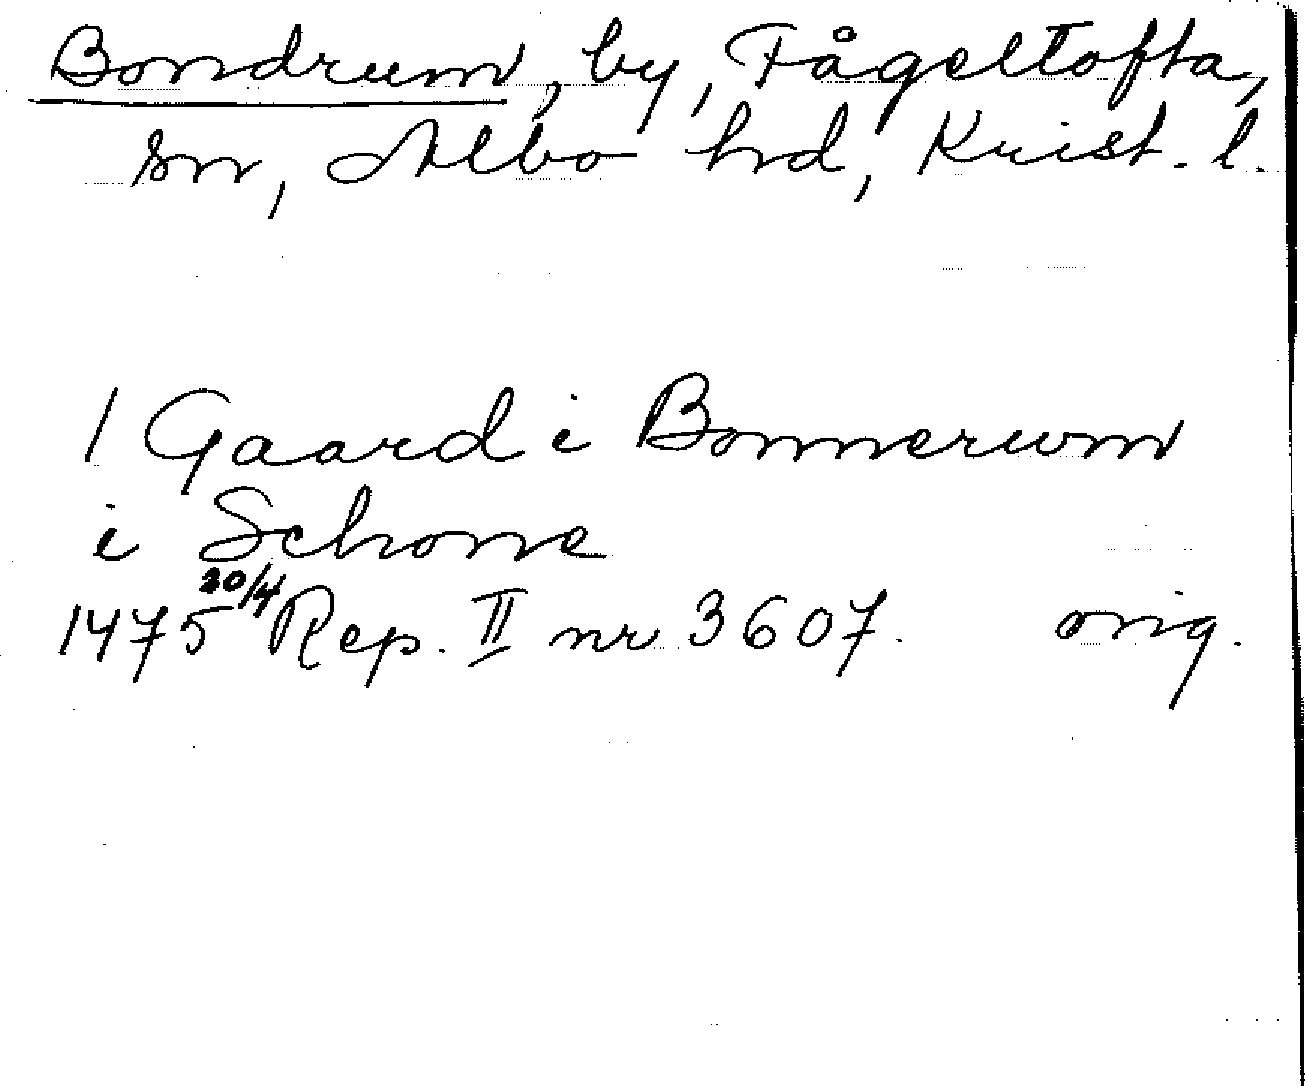 Bondrum, by, Fågeltofta,
sn, Albo hd, Krist. l.
1 Gaard i Bonnerwm
i Schone
1475 20/4 Rep. II nr 3607. orig.